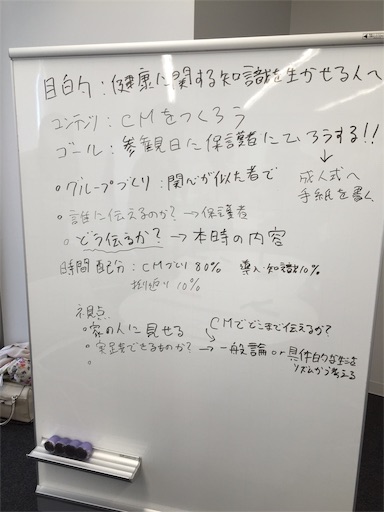 目的：健康に関する知識を生かせる人へ
コンテンツ：CMをつくろう
ゴール：参観日に保護者にひろうする!!
↓
成人式へ
手紙を書く
・グループづくり：関心が似た者で
・誰に伝えるのか？→保護者
・どう伝るか？→本時の内容
時間配分：CMづくり80% 導入・知識10%
振返り10%
視点
・家の人に見せる
CMでどこまで伝えるか？
・実生をできるものか？→一般論or具体的な生活
リズムから考える